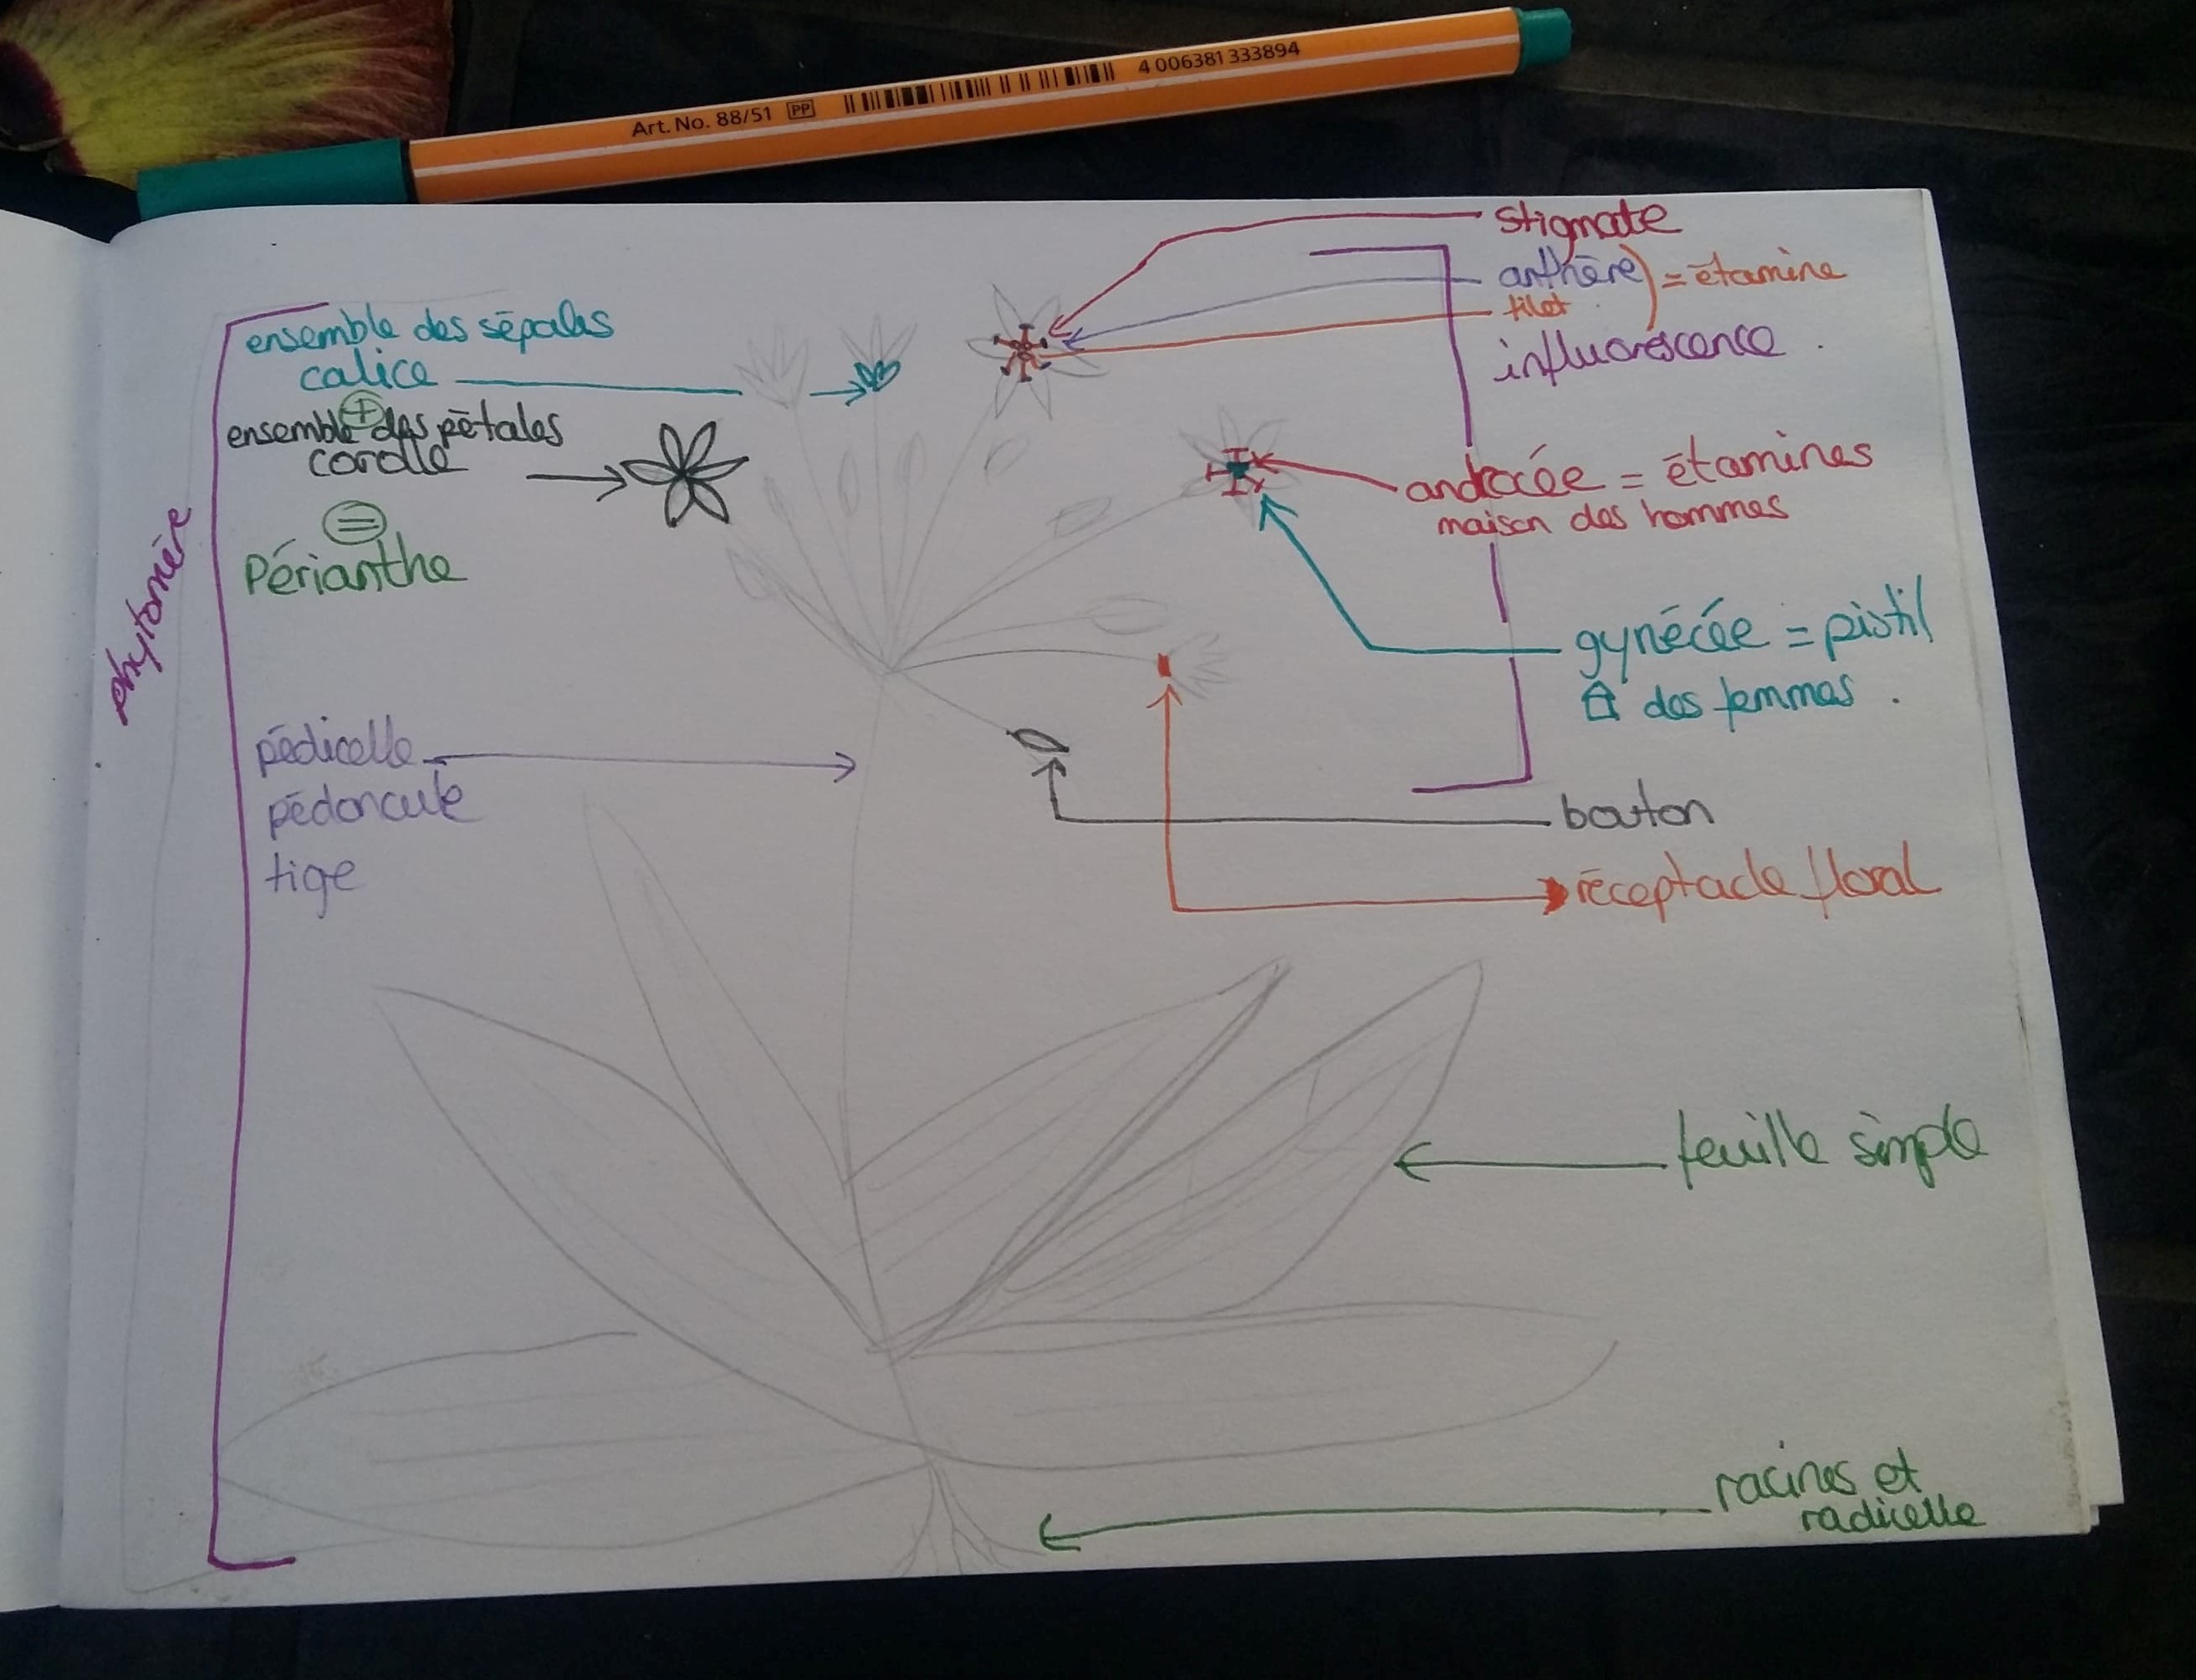 Art. No. 88/51 PP 4 006381 333894
stigmate
anthère ) = étamine
filet
influorescence .
ensemble des sépales
calice
+
ensemble des pétales
corolle
=
Périanthe
androcée = étamines
maison des hommes
gynécée = pistil
des femmes .
phytomère
pédicelle
pédoncule
tige
bouton
réceptacle floral
feuille simple
racines et
radicelle